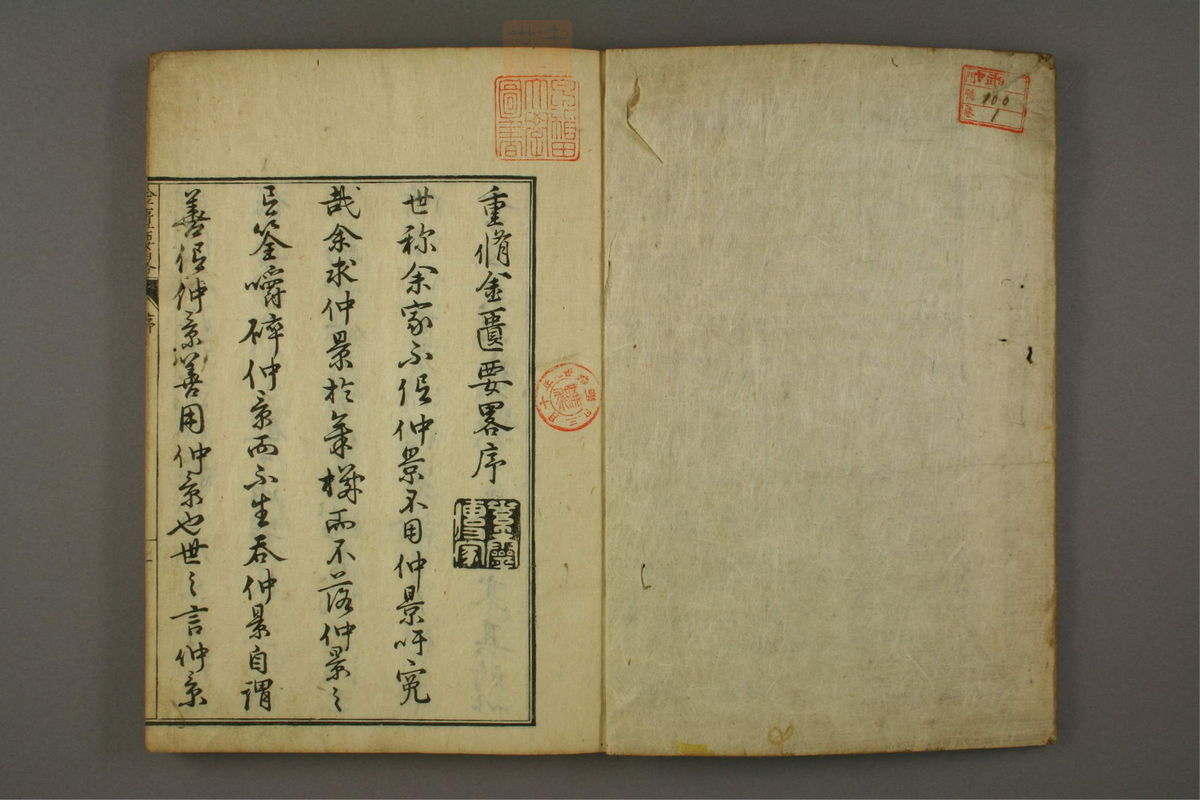 門 號 卷
100
1
早稲田大學圖書
重脩金匱要畧序
世称余家不信仲景不用仲景吁寃
哉余求仲景於筆構而不落仲景之
筌嚼碎仲景而不生吞仲景自謂
善信仲景善用仲景也世之言仲景
金匱要畧
序